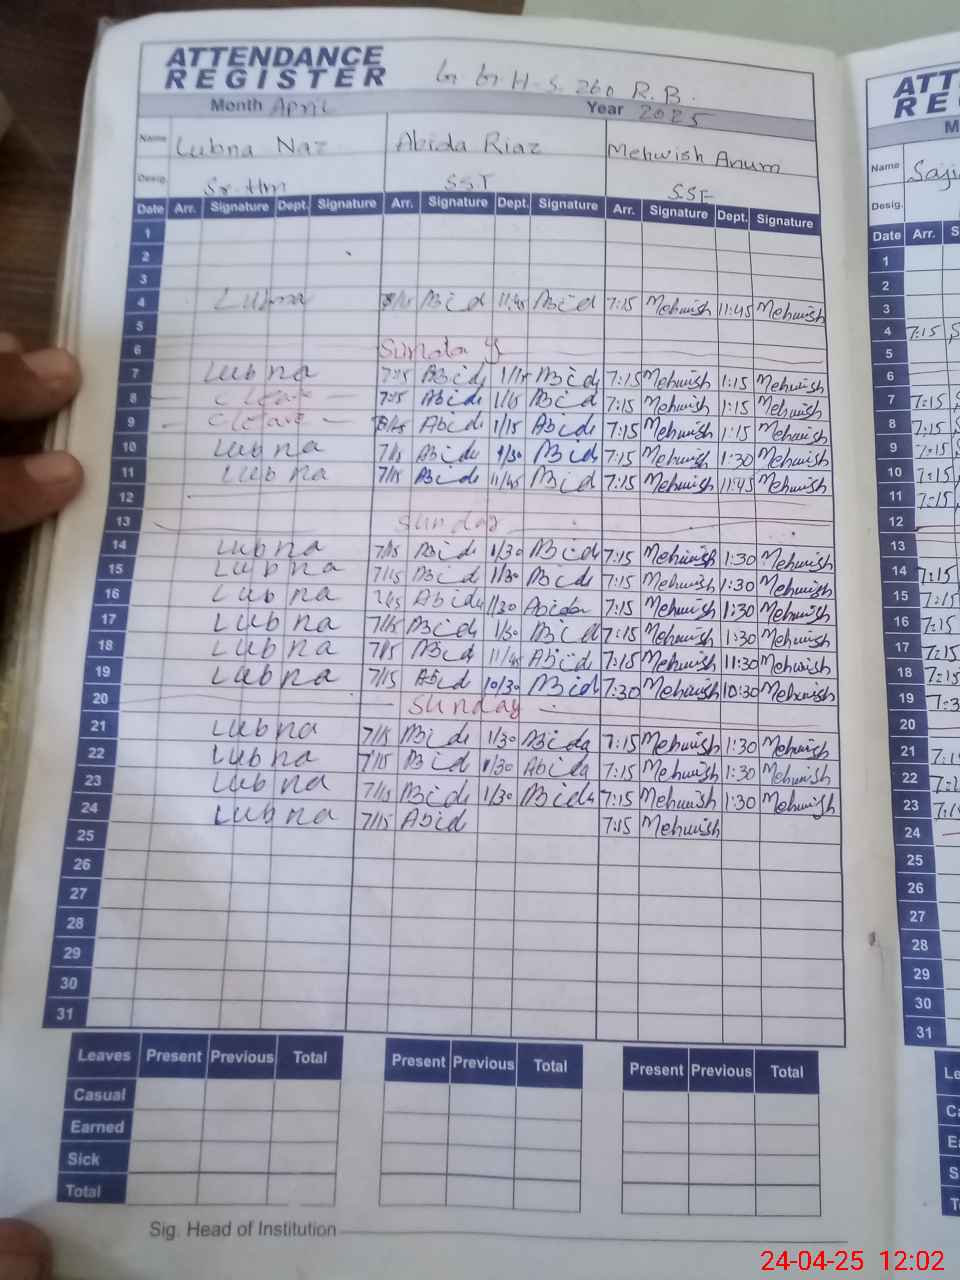 ATTENDANCE
REGISTER
G G H.S. 260 R.B.
Month April Year 2025
Name Lubna Naz Abida Riaz Mehwish Anum
Desig. Sr. Hm SST SSE
Date Arr. Signature Dept. Signature Arr. Signature Dept. Signature Arr. Signature Dept. Signature
1
2
3
4 Lubna Abid 11:45 Abid 7:15 Mehwish 11:45 Mehwish
5
6 Sunday
7 Lubna 7:15 Abida 1/15 Abida 7:15 Mehwish 1:15 Mehwish
8 C leave 7:15 Abida 1/15 Abid 7:15 Mehwish 1:15 Mehwish
9 C leave Abida 1/15 Abida 7:15 Mehwish 1:15 Mehwish
10 Lubna 7/15 Abida 1/30 Abid 7:15 Mehwish 1:30 Mehwish
11 Lubna 7/15 Abida 11/45 Abid 7:15 Mehwish 11:45 Mehwish
12
13 Sunday
14 Lubna 7/15 Abida 1/30 Abida 7:15 Mehwish 1:30 Mehwish
15 Lubna 7/15 Abida 1/30 Abida 7:15 Mehwish 1:30 Mehwish
16 Lubna Abida 1/30 Abida 7:15 Mehwish 1:30 Mehwish
17 Lubna 7/15 Abida 1/30 Abida 7:15 Mehwish 1:30 Mehwish
18 Lubna 7/15 Abida 11/45 Abida 7:15 Mehwish 11:30 Mehwish
19 Lubna 7/15 Abid 10/30 Abid 7:30 Mehwish 10:30 Mehwish
20 Sunday
21 Lubna 7/15 Abida 1/30 Abida 7:15 Mehwish 1:30 Mehwish
22 Lubna 7/15 Abida 1/30 Abida 7:15 Mehwish 1:30 Mehwish
23 Lubna 7/15 Abida 1/30 Abida 7:15 Mehwish 1:30 Mehwish
24 Lubna 7/15 Abid 7:15 Mehwish
25
26
27
28
29
30
31
Leaves Present Previous Total Present Previous Total Present Previous Total
Casual
Earned
Sick
Total
Sig. Head of Institution
Name
Desig.
Date Arr.
1
2
3
4 7:15
5
6
7 7:15
8 7:15
9 7:15
10 7:15
11 7:15
12
13
14 7:15
15 7:15
16 7:15
17 7:15
18 7:15
19
20
21
22
23
24
25
26
27
28
29
30
31
24-04-25 12:02